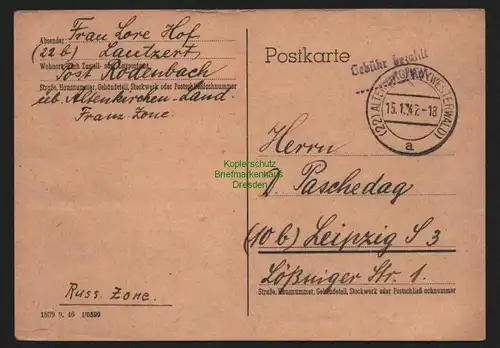 Absender: Frau Lore Hof
(22b) Lautzert
Wohnort, auch Zustell- oder Leitpostamt
Post Rodenbach
Straße, Hausnummer, Gebäudeteil, Stockwerk oder Postschließfachnummer
üb. Altenkirchen-Land
Franz. Zone.
Russ. Zone.
1529 9. 46
Postkarte
Gebühr bezahlt
(22) (WESTERWALD)
15.1.47-18
a
Herrn
Paschedag
(10b) Leipzig S 3
Lößniger Str. 1.
Straße, Hausnummer, Gebäudeteil, Stockwerk oder Postschließfachnummer
Kopierschutz
Briefmarkenhaus
Dresden